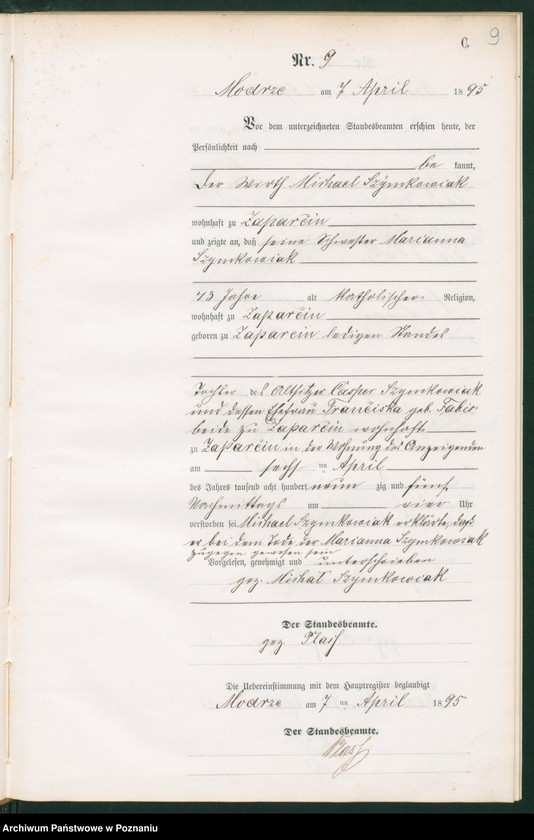 C. 9
Nr. 9
Modrze am 7 April 1895
Vor dem unterzeichneten Standesbeamten erschien heute, der
Persönlichkeit nach
be kannt,
der Wirth Michael Szymkowiak
wohnhaft zu Zaparcin
und zeigte an, daß seine Schwester Marianna
Szymkowiak
73 Jahre alt katholischer Religion,
wohnhaft zu Zaparcin
geboren zu Zaparcin ledigen Standes
Tochter des Altsitzer Casper Szymkowiak
und dessen Ehefrau Franciska geb. Fabis
beide zu Zaparcin wohnhaft
zu Zaparcin in der Wohnung des Anzeigenden
am sechs ten April
des Jahres tausend acht hundert neun zig und fünf
Nachmittags um vier Uhr
verstorben sei. Michael Szymkowiak erklärte, daß
er bei dem Tode der Marianna Szymkowiak
zugegen gewesen sein
Vorgelesen, genehmigt und unterschrieben
gez. Michał Szymkowiak
Der Standesbeamte.
gez Plass
Die Uebereinstimmung mit dem Hauptregister beglaubigt
Modrze am 7 ten April 1895
Der Standesbeamte.
Plass
Archiwum Państwowe w Poznaniu